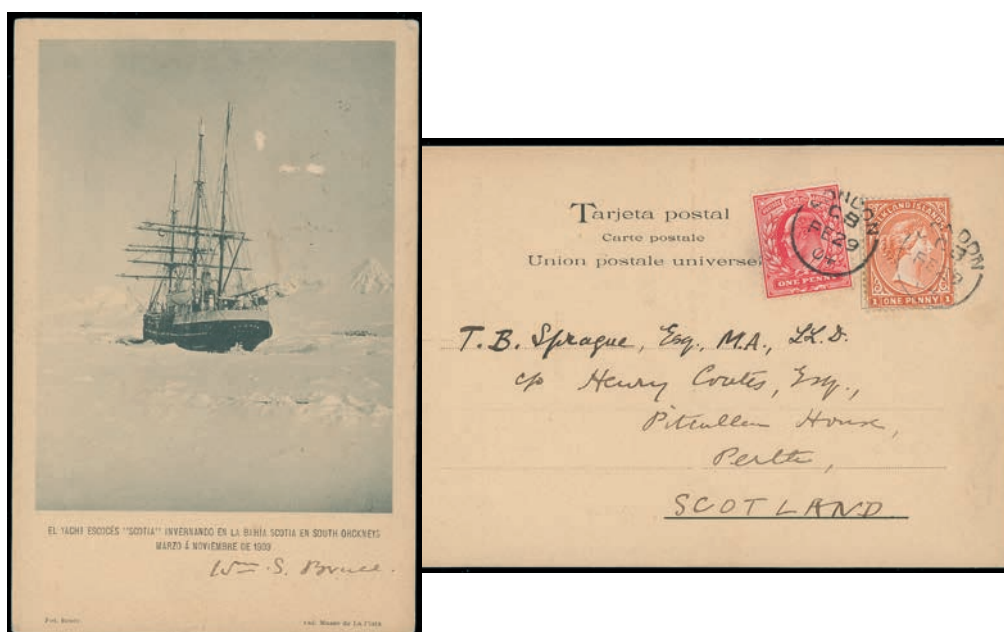 EL YACHT ESCOCÉS "SCOTIA" INVERNANDO EN LA BAHÍA SCOTIA EN SOUTH ORCKNEYS
MARZO Á NOVIEMBRE DE 1903
Wm. S. Bruce.
Museo de La Plata
Tarjeta postal
Carte postale
Union postale universel
ONE PENNY
LONDON
FE 29
04
KLAND ISLAND
1 ONE PENNY 1
T. B. Sprague, Esq., M.A., LL.D.
c/o Henry Coates, Esq.,
Pitcullen House,
Perth,
SCOTLAND.